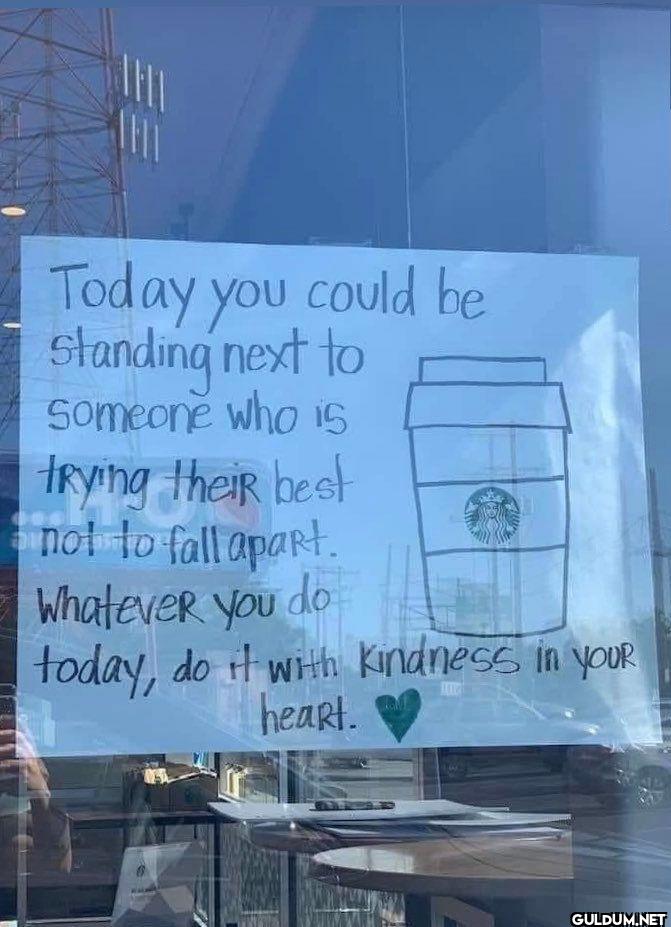 Today you could be
standing next to
someone who is
trying their best
not to fall apart.
Whatever you do
today, do it with kindness in your
heart.
GULDUM.NET